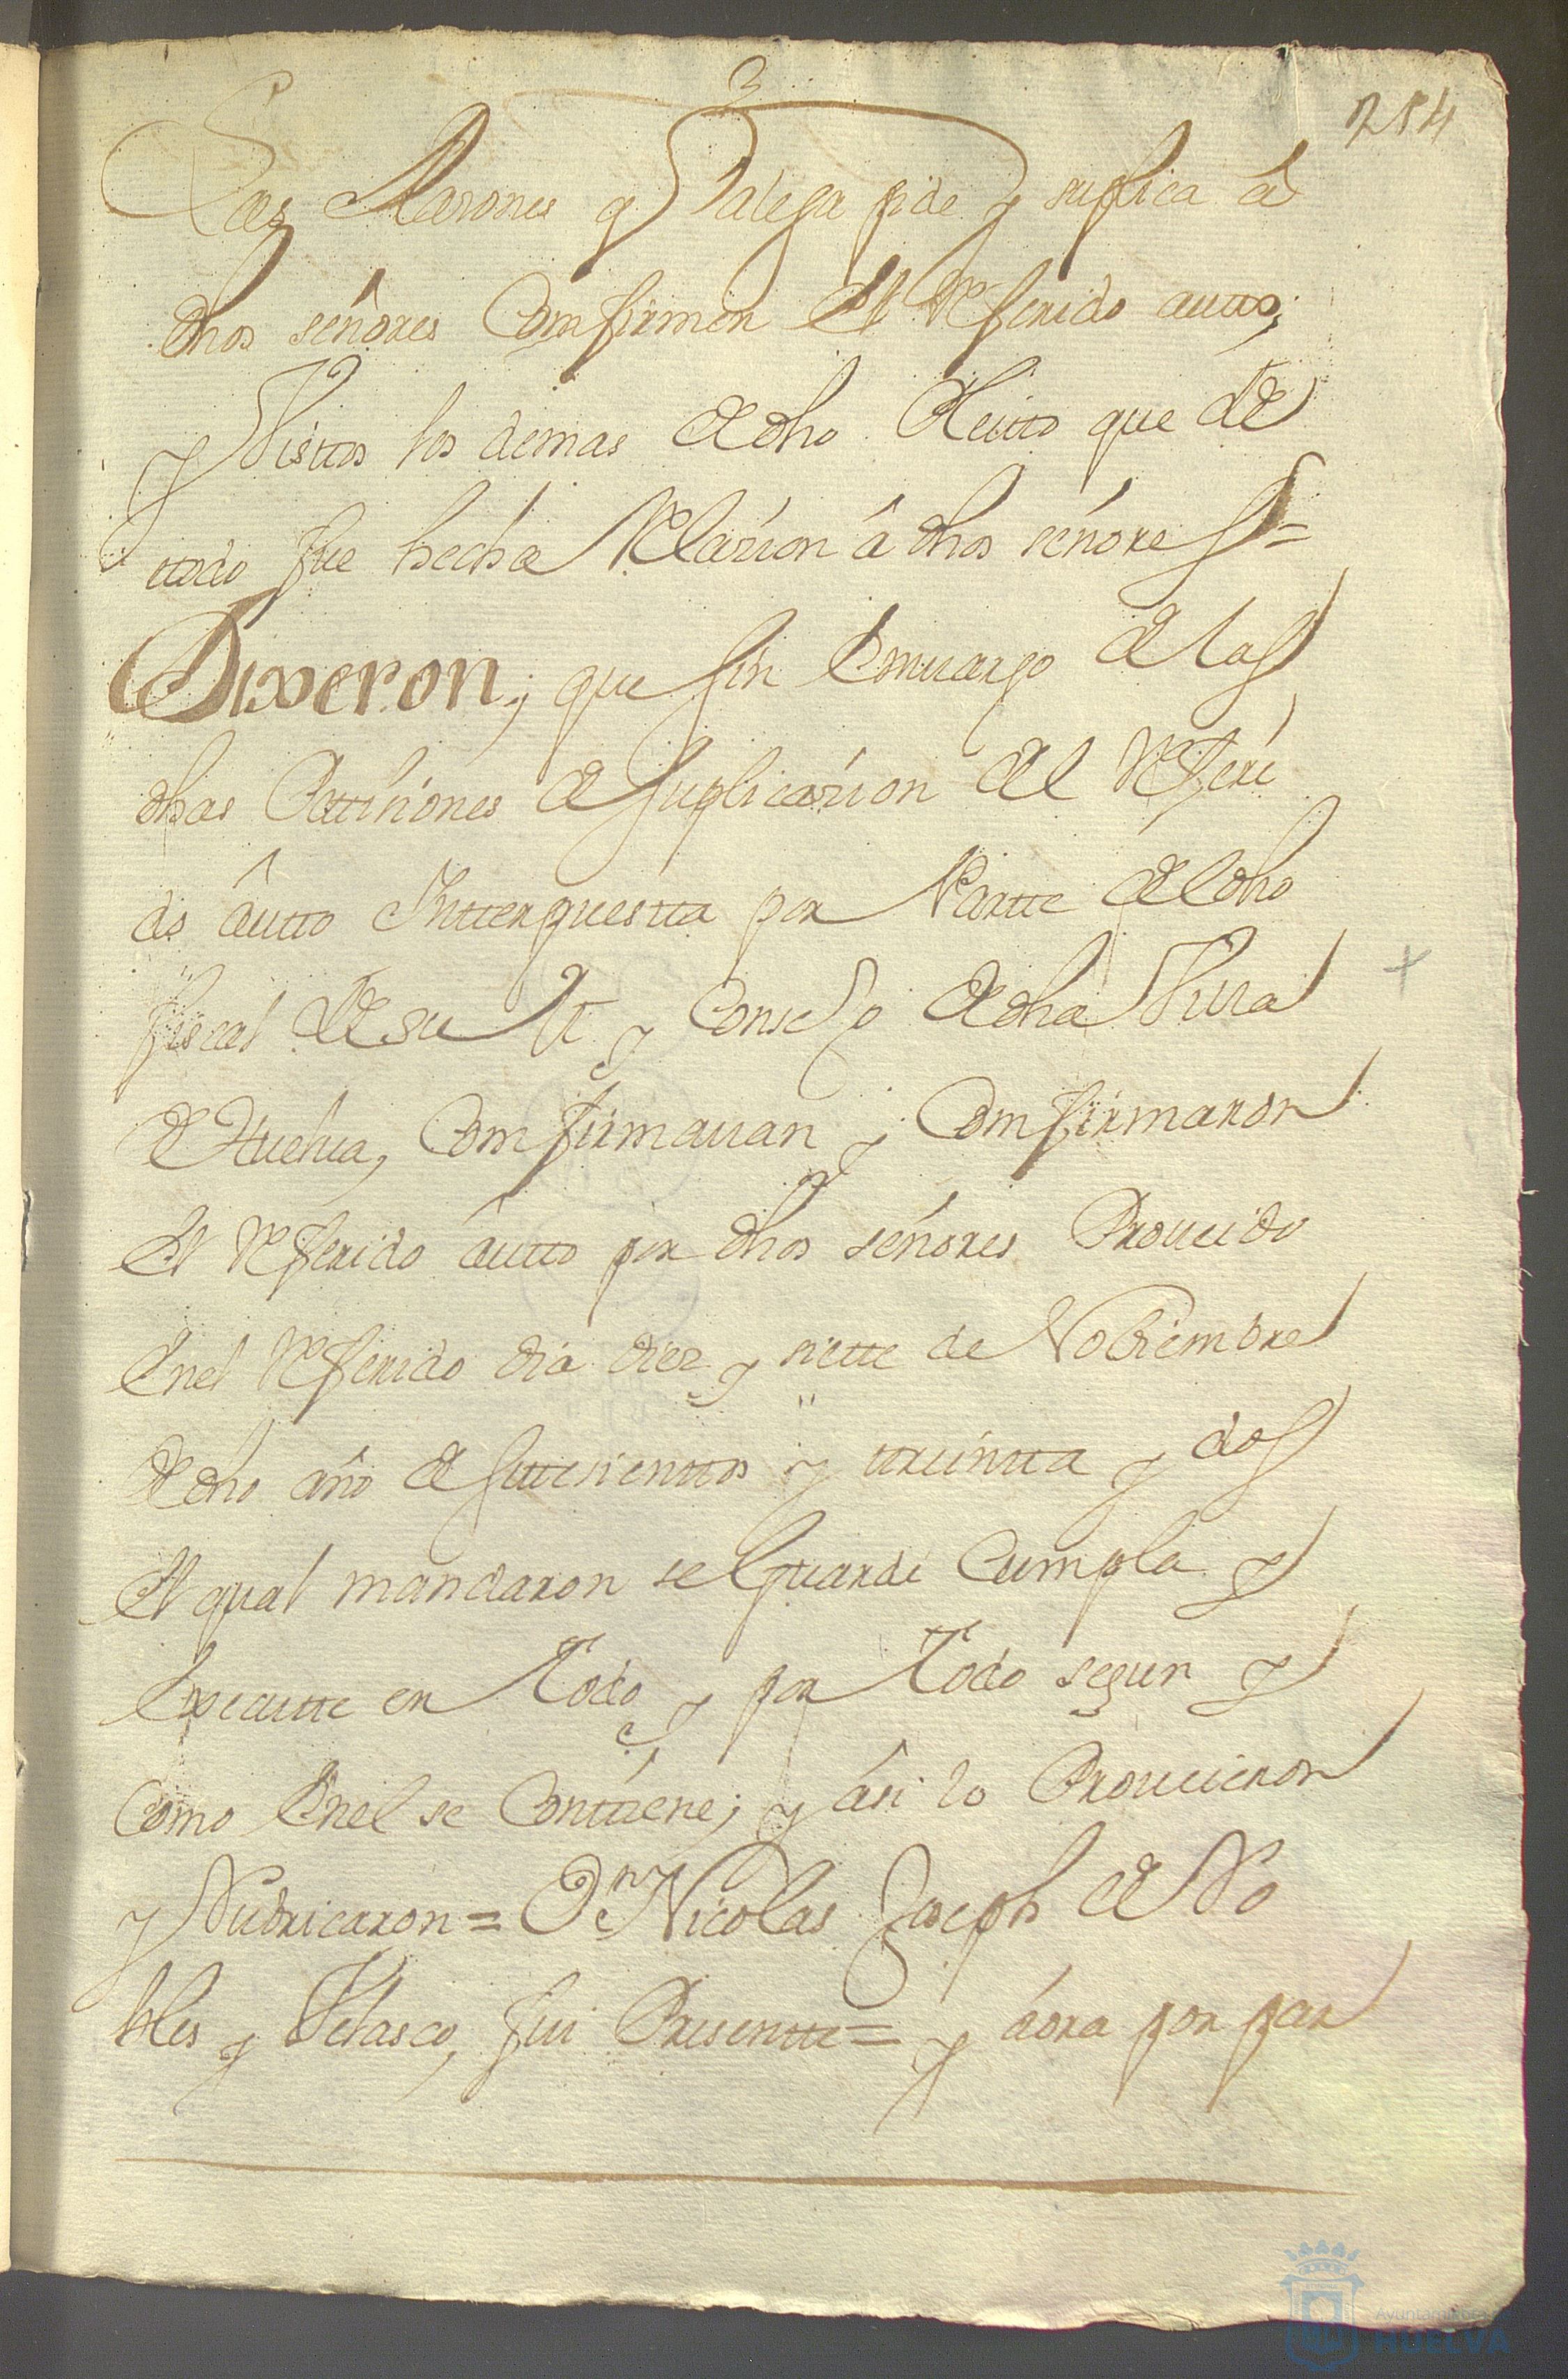 284
Las Rasones q̃ alega pide y suplica â
dhos señores Comfirmen El Referido autto;
y Visttos los demas de dho Pleitto que de
ttodo fue hecha Relazíon â dhos señores =
Dixeron; que sin Emuargo de las
dhas Pettiziones de suplicazíon del Referí
do âuttoIntterpuestta por Partte del dho
fiscal de su M y Consejo de dha Villa
de Huelua, Comfirmauan y Comfirmaron
El Referido âutto por dhos señores Proueido
Enel Referido día diez y siette de Nobiembre
de dho año de settesienttos y treíntta y dos
El qual mandaron se Guarde Cumpla y
Execute en Todo y por Todo segun y
Como Enel se Conttíene; y ási lo Proueieron
y Rubricaron = Dn Nicolas Joseph de Ro
bles y Velasco, fui Presentte = y áora por par
Ayuntamiento de
HUELVA